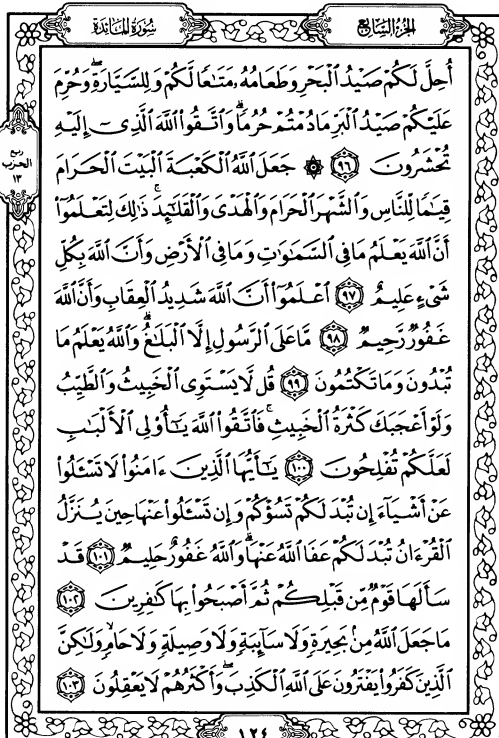 الجزء السابع
سورة المائدة
أُحِلَّ لَكُمْ صَيْدُ ٱلْبَحْرِ وَطَعَامُهُۥ مَتَٰعًا لَّكُمْ وَلِلسَّيَّارَةِۖ وَحُرِّمَ
عَلَيْكُمْ صَيْدُ ٱلْبَرِّ مَا دُمْتُمْ حُرُمًاۗ وَٱتَّقُوا۟ ٱللَّهَ ٱلَّذِىٓ إِلَيْهِ
تُحْشَرُونَ ٩٦ ۞ جَعَلَ ٱللَّهُ ٱلْكَعْبَةَ ٱلْبَيْتَ ٱلْحَرَامَ
ربع
الحزب
١٣
قِيَٰمًا لِّلنَّاسِ وَٱلشَّهْرَ ٱلْحَرَامَ وَٱلْهَدْىَ وَٱلْقَلَٰٓئِدَۚ ذَٰلِكَ لِتَعْلَمُوٓا۟
أَنَّ ٱللَّهَ يَعْلَمُ مَا فِى ٱلسَّمَٰوَٰتِ وَمَا فِى ٱلْأَرْضِ وَأَنَّ ٱللَّهَ بِكُلِّ
شَىْءٍ عَلِيمٌ ٩٧ ٱعْلَمُوٓا۟ أَنَّ ٱللَّهَ شَدِيدُ ٱلْعِقَابِ وَأَنَّ ٱللَّهَ
غَفُورٌ رَّحِيمٌ ٩٨ مَّا عَلَى ٱلرَّسُولِ إِلَّا ٱلْبَلَٰغُۗ وَٱللَّهُ يَعْلَمُ مَا
تُبْدُونَ وَمَا تَكْتُمُونَ ٩٩ قُل لَّا يَسْتَوِى ٱلْخَبِيثُ وَٱلطَّيِّبُ
وَلَوْ أَعْجَبَكَ كَثْرَةُ ٱلْخَبِيثِۚ فَٱتَّقُوا۟ ٱللَّهَ يَٰٓأُو۟لِى ٱلْأَلْبَٰبِ
لَعَلَّكُمْ تُفْلِحُونَ ١٠٠ يَٰٓأَيُّهَا ٱلَّذِينَ ءَامَنُوا۟ لَا تَسْـَٔلُوا۟
عَنْ أَشْيَآءَ إِن تُبْدَ لَكُمْ تَسُؤْكُمْ وَإِن تَسْـَٔلُوا۟ عَنْهَا حِينَ يُنَزَّلُ
ٱلْقُرْءَانُ تُبْدَ لَكُمْ عَفَا ٱللَّهُ عَنْهَاۗ وَٱللَّهُ غَفُورٌ حَلِيمٌ ١٠١ قَدْ
سَأَلَهَا قَوْمٌ مِّن قَبْلِكُمْ ثُمَّ أَصْبَحُوا۟ بِهَا كَٰفِرِينَ ١٠٢
مَا جَعَلَ ٱللَّهُ مِنۢ بَحِيرَةٍ وَلَا سَآئِبَةٍ وَلَا وَصِيلَةٍ وَلَا حَامٍۙ وَلَٰكِنَّ
ٱلَّذِينَ كَفَرُوا۟ يَفْتَرُونَ عَلَى ٱللَّهِ ٱلْكَذِبَۖ وَأَكْثَرُهُمْ لَا يَعْقِلُونَ ١٠٣
١٢٤